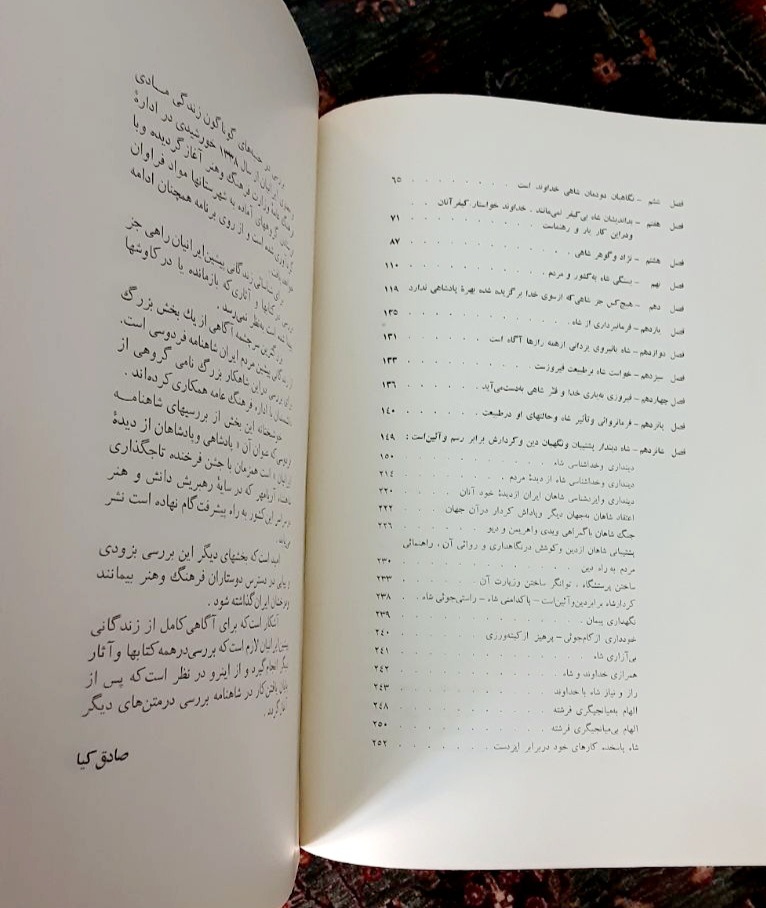 بررسی در جنبه‌های گوناگون زندگی مادی
ایرانیان از سال ۱۳۳۸ خورشیدی در ادارهٔ
فرهنگ عامه وزارت فرهنگ وهنر آغاز گردیده وبا
گروههای آماده به شهرستانها مواد فراوان
گردآوری شده است و از روی برنامه همچنان ادامه
برای شناسائی زندگانی پیشین ایرانیان راهی جز
کتابها و آثاری که بازمانده یا در کاوشها
است به‌نظر نمی‌رسد .
بزرگترین سرچشمه آگاهی از یك بخش بزرگ
زندگانی پیشین مردم ایران شاهنامه فردوسی است .
بررسی دراین شاهکار بزرگ نامی گروهی از
با ادارهٔ فرهنگ عامه همکاری کرده‌اند .
خوشبختانه این بخش از بررسیهای شاهنامـه
فردوسی که عنوان آن « پادشاهی وپادشاهان از دیدهٔ
ایرانیان » است همزمان با جشن فرخنده تاجگذاری
آریامهر که در سایهٔ رهبریش دانش و هنر
در سراسر این کشور به راه پیشرفت گام نهاده است نشر
امید است که بخشهای دیگر این بررسی بزودی
در دسترس دوستاران فرهنگ وهنر بیمانند
ودرخشان ایران گذاشته شود .
آشکار است که برای آگاهی کامل از زندگانی
پیشین ایرانیان لازم است که بررسی درهمه کتابها وآثار
دیگر انجام گیرد و از اینرو در نظر است که پس از
پایان یافتن کار در شاهنامه بررسی درمتن‌های دیگر
آغاز گردد .
صادق کیا
فصل ششم – نگاهبان دودمان شاهی خداوند است . . . . . . . . ۶۵
فصل هفتم – بداندیشان شاه بی‌کیفر نمی‌مانند . خداوند خواستار کیفرآنان . .
ودراین کار یار و رهنماست . . . . . . . ۷۱
فصل هشتم – نژاد وگوهر شاهی . . . . . . . . ۸۷
فصل نهم – بستگی شاه به‌کشور و مردم . . . . . . . . ۱۱۰
فصل دهم – هیچ‌کس جز شاهی‌که ازسوی خدا برگزیده شده بهرهٔ پادشاهی ندارد ۱۱۹
فصل یازدهم – فرمانبرداری از شاه . . . . . . . . ۱۳۵
فصل دوازدهم – شاه بانیروی یزدانی ازهمه رازها آگاه است . . . . ۱۳۱
فصل سیزدهم – خواست شاه برطبیعت فیروزست . . . . . . ۱۳۳
فصل چهاردهم – فیروزی به‌یاری خدا و فـّر شاهی به‌دست‌می‌آید . . . . ۱۳۶
فصل پانزدهم – فرمانروائی وتأثیر شاه وحالتهای او درطبیعت . . . . ۱۴۰
فصل شانزدهم – شاه دیندار پشتیبان ونگهبان دین وکردارش برابر رسم وآئین‌است : ۱۴۹
دینداری وخداشناسی شاه . . . . . . . . ۱۵۰
دینداری وخداشناسی شاه از دیدهٔ مردم . . . . . . . ۲۱۴
دینداری وایزدشناسی شاهان ایران ازدیدهٔ خود آنان . . . . . ۲۲۰
اعتقاد شاهان به‌جهان دیگر وپاداش کردار درآن جهان . . . . . ۲۲۲
جنگ شاهان باگمراهی وبدی واهریمن و دیو . . . . . . ۲۲۶
پشتیبانی شاهان ازدین وکوشش درنگاهداری و روائی آن ، راهنمائی
مردم به راه دین . . . . . . . . ۲۳۰
ساختن پرستشگاه ، توانگر ساختن وزیارت آن . . . . . . ۲۳۳
کردارشاه برابردین‌وآئین‌است – پاکدامنی شاه – راستی‌جوئی شاه . . . ۲۳۸
نگهداری پیمان . . . . . . . . ۲۳۹
خودداری ازکام‌جوئی – پرهیز ازکینه‌ورزی . . . . . . ۲۴۰
بی‌آزاری شاه . . . . . . . . ۲۴۱
همرازی خداوند و شاه . . . . . . . . ۲۴۲
راز و نیاز شاه باخداوند . . . . . . . . ۲۴۳
الهام به‌میانجیگری فرشته . . . . . . . . ۲۴۸
الهام بی‌میانجیگری فرشته . . . . . . . . ۲۵۰
شاه پاسخده کارهای خود دربرابر ایزدست . . . . . . . ۲۵۲